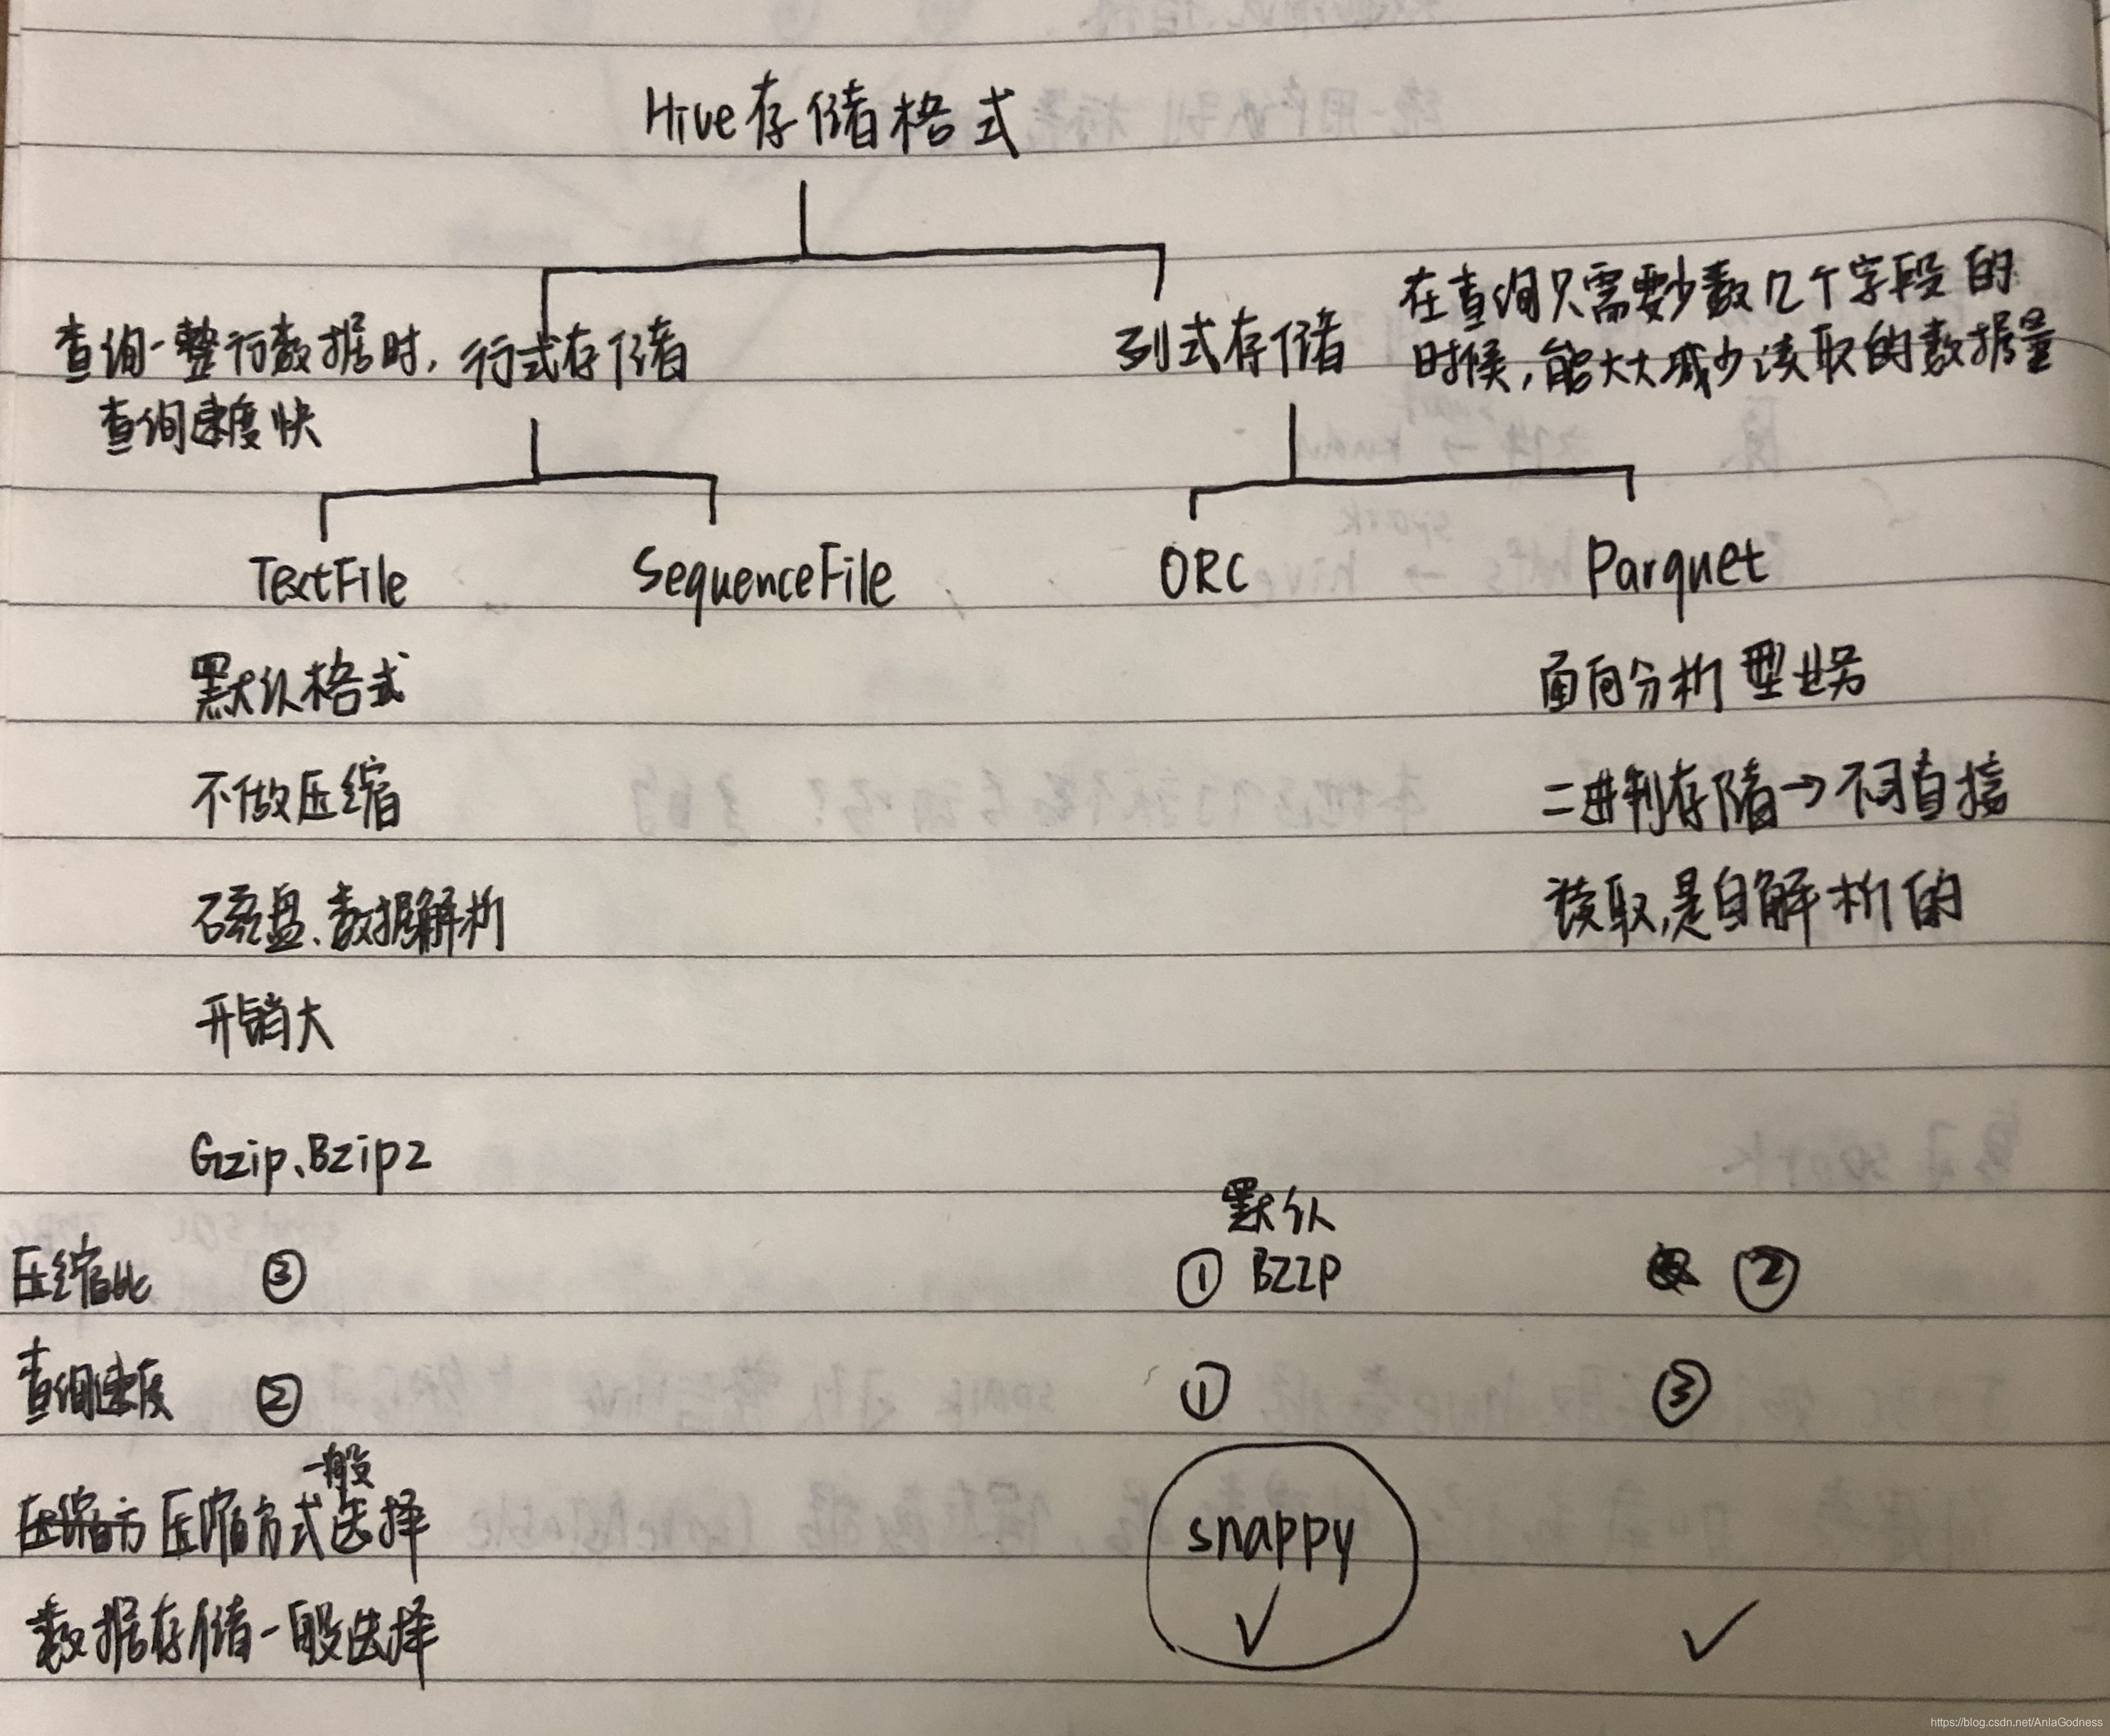 Hive存储格式
查询一整行数据时，行式存储 列式存储 在查询只需要少数几个字段的
查询速度快 时候，能大大减少读取的数据量
TextFile SequenceFile ORC Parquet
默认格式 面向分析型业务
不做压缩 二进制存储→不可直接
磁盘、数据解析 读取，是自解析的
开销大
Gzip、Bzip2
默认
压缩比 ③ ① BZZP ②
查询速度 ② ① ③
一般
压缩方 压缩方式选择 snappy
数据存储一般选择 ✓ ✓
https://blog.csdn.net/AnlaGodness